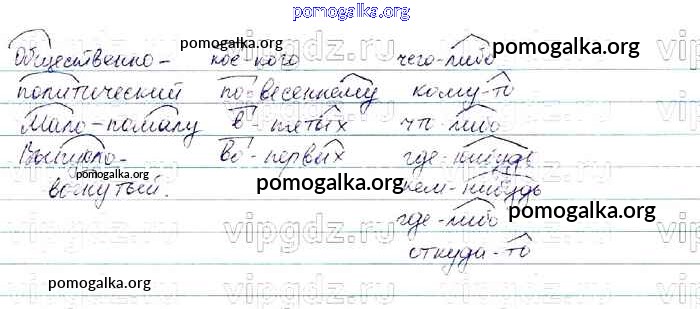 pomogalka.org
Общественно- кое кого чего-либо
pomogalka.org pomogalka.org
политический по-весеннему кому-то
Мало-помалу в-пятых чт-либо
pomogalka.org
Выпукло- во-первых где-нибудь
pomogalka.org pomogalka.org
вогнутый. кем-нибудь
pomogalka.org
где-либо
vipgdz.ru
откуда-то
pomogalka.org